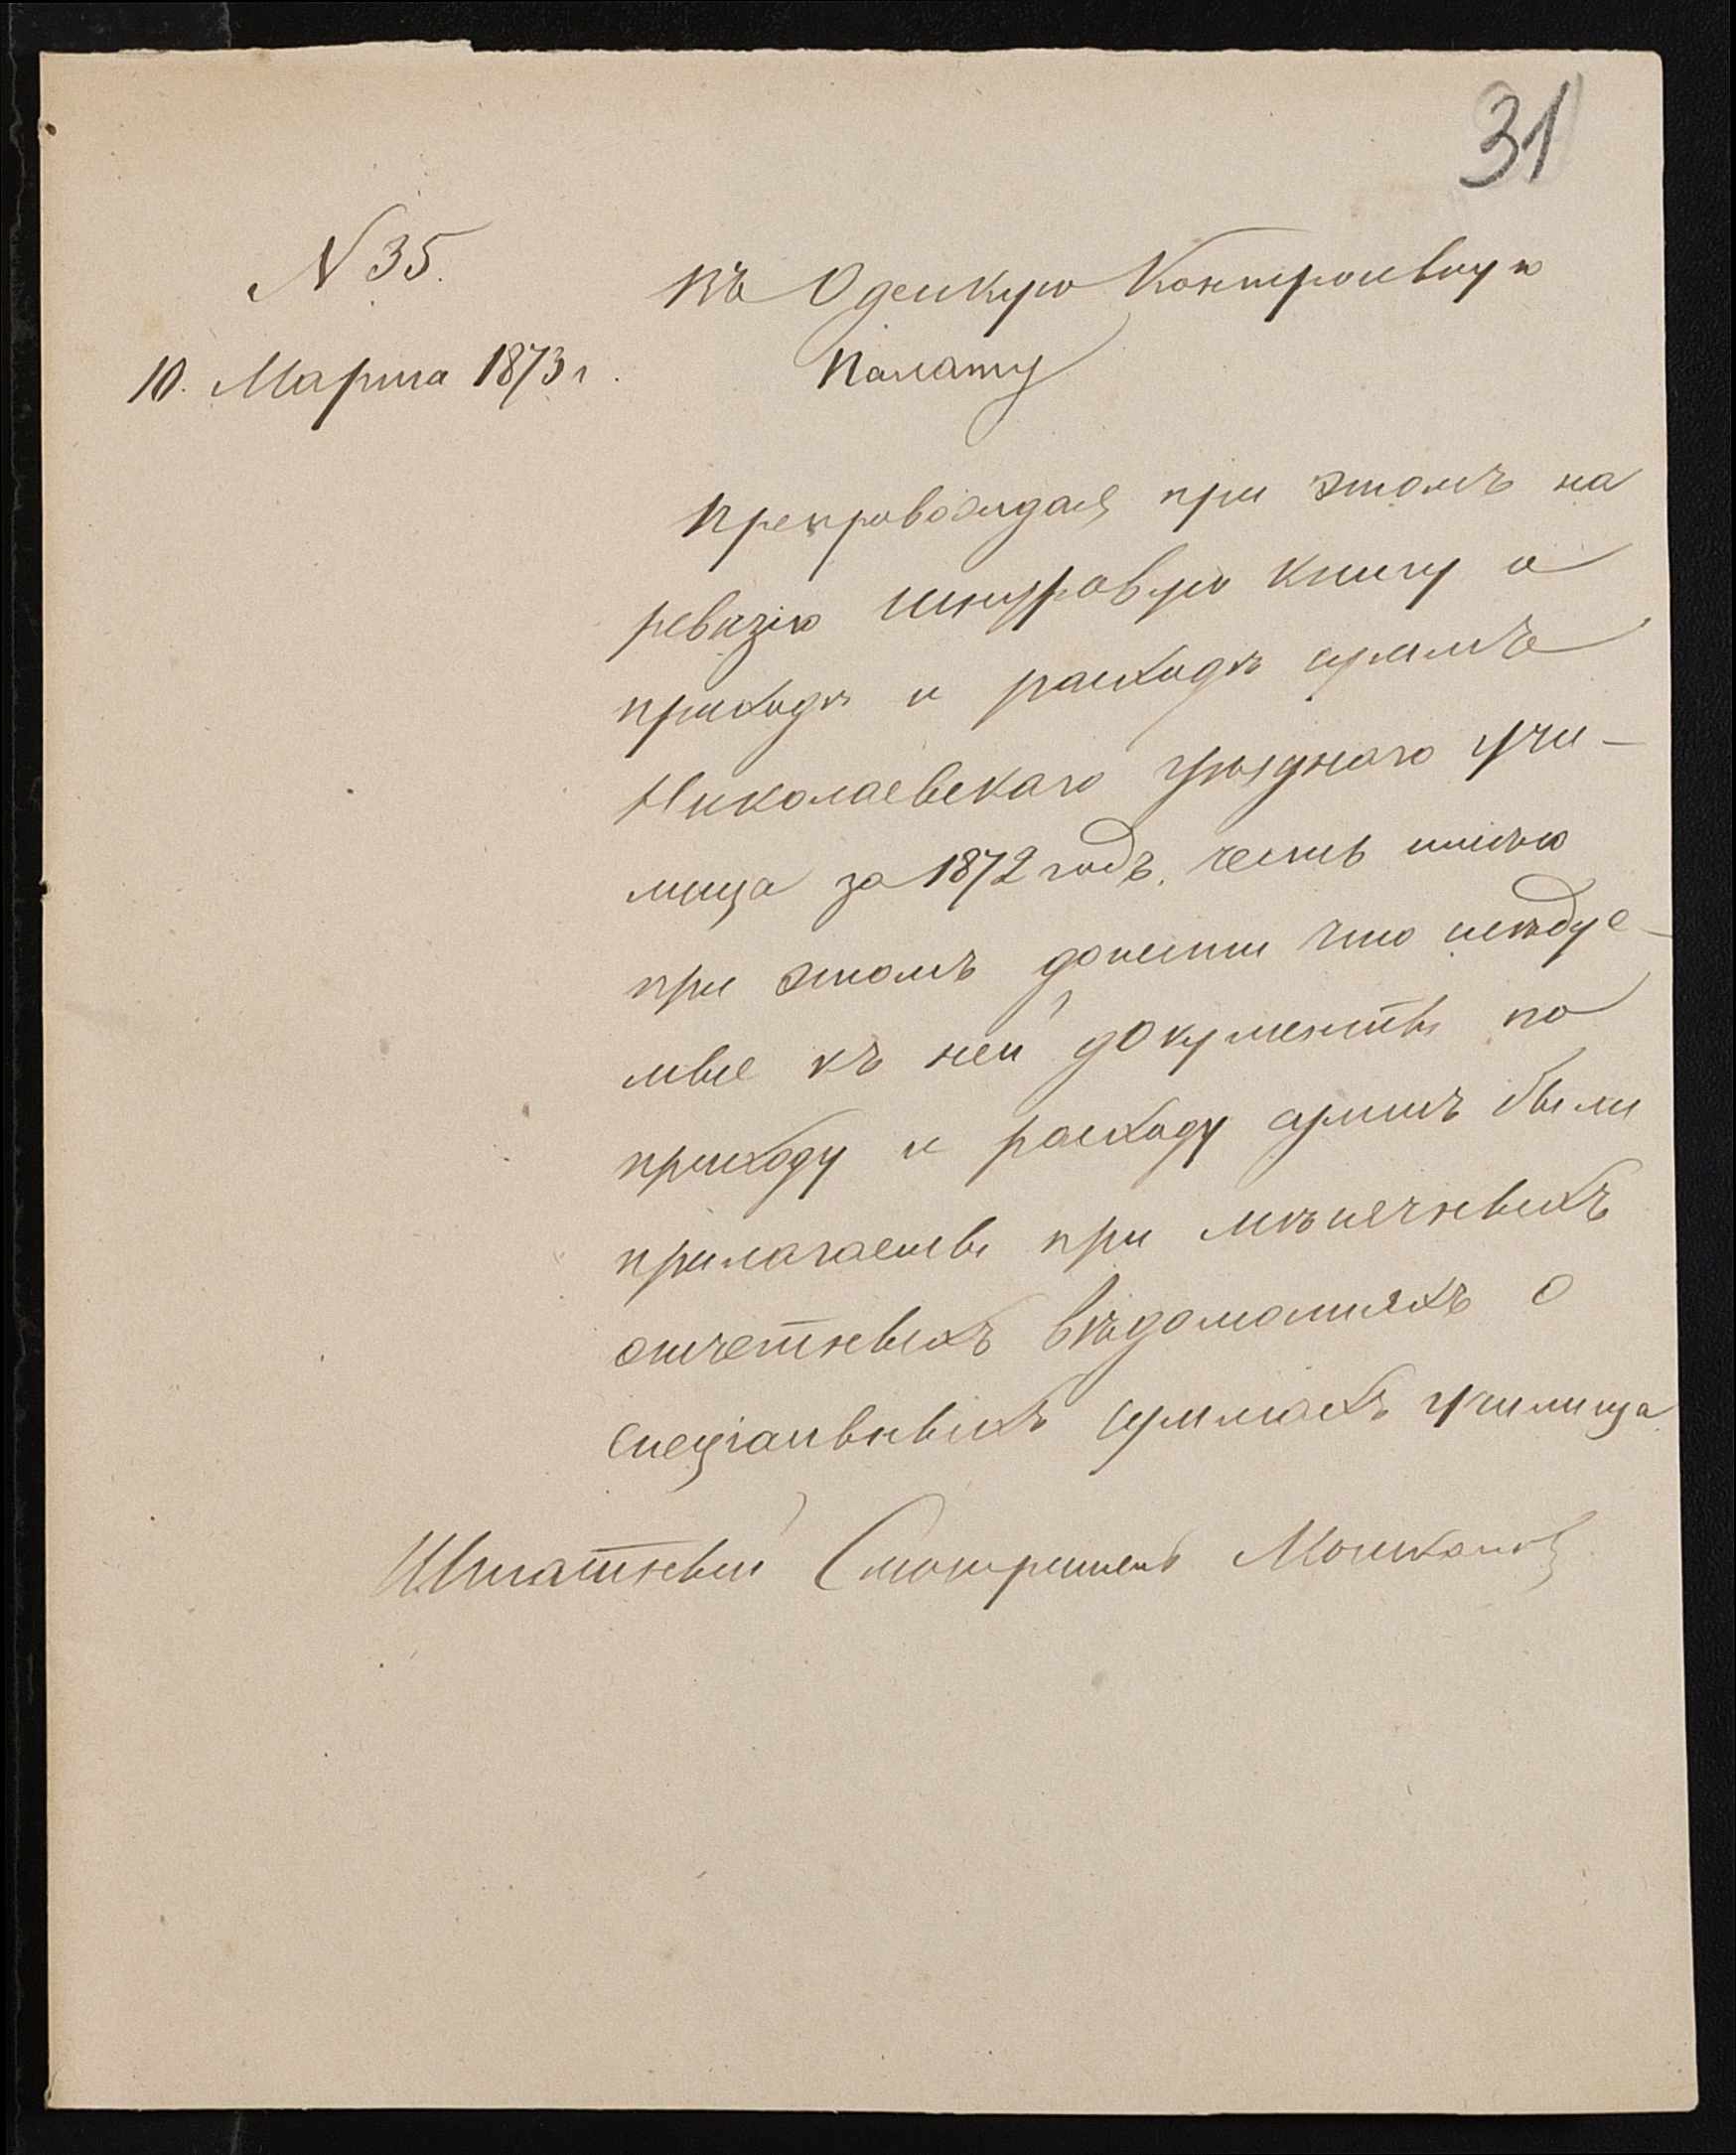 31
N 35.
Въ Одескую Контрольную
10. Марта 1873 г.
Палату
Препровождая при этомъ на
ревизію шнуровую книгу о
приходѣ и расходѣ суммъ
Николаевскаго уѣзднаго учи-
лища за 1872 годъ, честь имѣю
при этомъ донести что слѣдуе-
мые къ ней документы по
приходу и расходу суммъ были
прилагаемы при мѣсячныхъ
отчетныхъ вѣдомостяхъ о
спеціальныхъ суммахъ училища
Штатный Смотритель